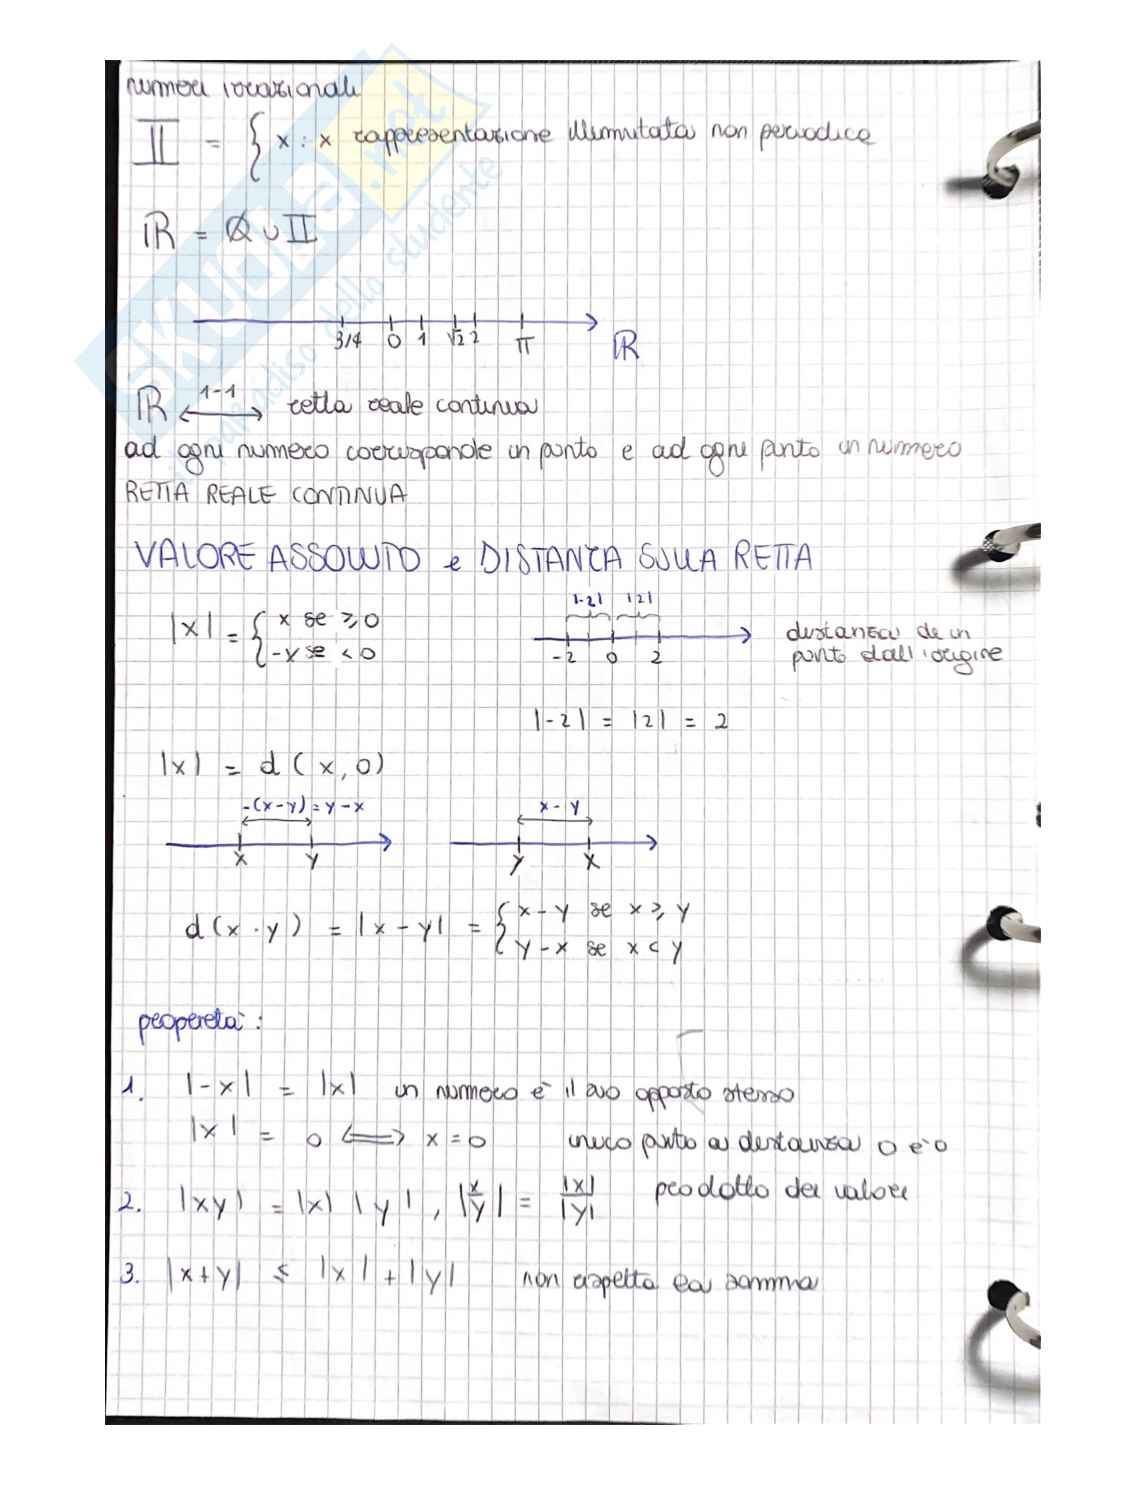 numeri irrazionali
II = { x : x rappresentazione illimitata non periodica
ℝ = ℚ ∪ II
3/4 0 1 √2 2 π ℝ
ℝ ⟷ 1-1 retta reale continua
ad ogni numero corrisponde un punto e ad ogni punto un numero
RETTA REALE CONTINUA
VALORE ASSOLUTO e DISTANZA SULLA RETTA
|x| = { x se ≥ 0
-x se < 0
|-2| |2|
-2 0 2
distanza di un
punto dall'origine
|-2| = |2| = 2
|x| = d (x, 0)
-(x-y) = y-x
x y
x - y
y x
d (x · y) = |x - y| = { x - y se x ≥ y
y - x se x < y
proprietà :
1. |-x| = |x| un numero è il suo opposto stesso
|x| = 0 ⟺ x = 0 unico punto a distanza 0 è 0
2. |xy| = |x| |y| , |x/y| = |x|/|y| prodotto dei valori
3. |x+y| ≤ |x| + |y| non rispetta la somma
SKUOLA.net
paradiso dello studente